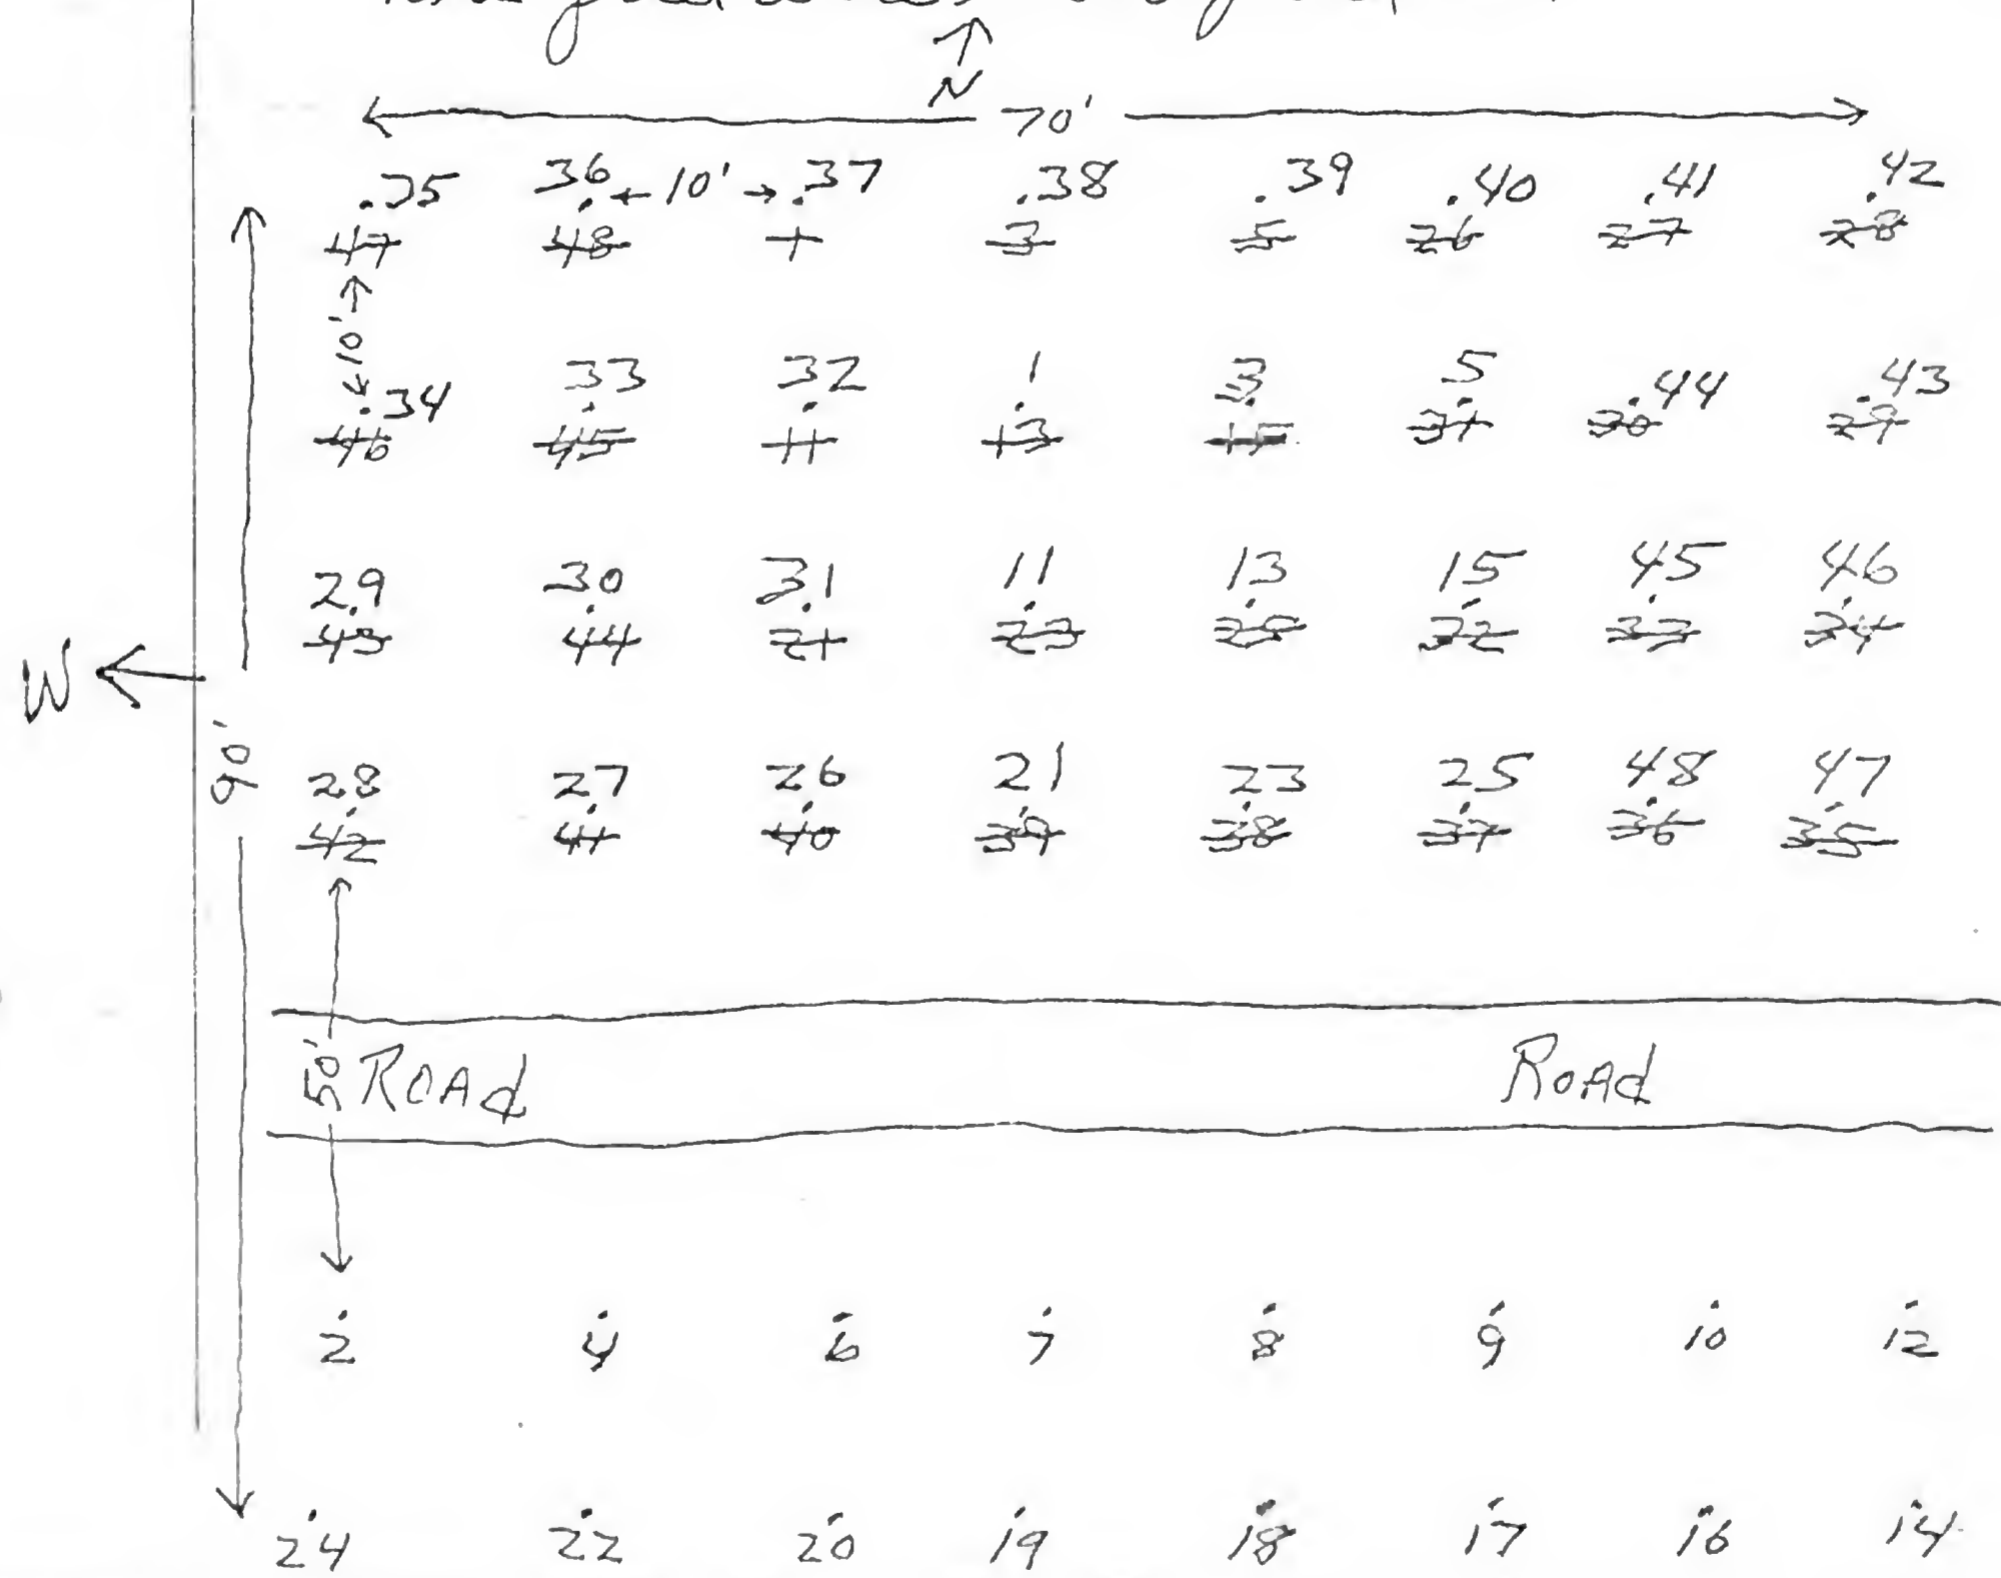 N
70'
.35 36 ←10'→ .37 .38 .39 .40 .41 .42
47 48 1 3 5 26 27 28
10'
.34 33 32 1 3 5 .44 .43
46 45 11 13 15 31 30 29
29 30 31 11 13 15 45 46
43 44 21 23 25 32 33 34
W
90'
28 27 26 21 23 25 48 47
42 41 40 39 38 37 36 35
50' ROAD ROAD
2 4 6 7 8 9 10 12
24 22 20 19 18 17 16 14